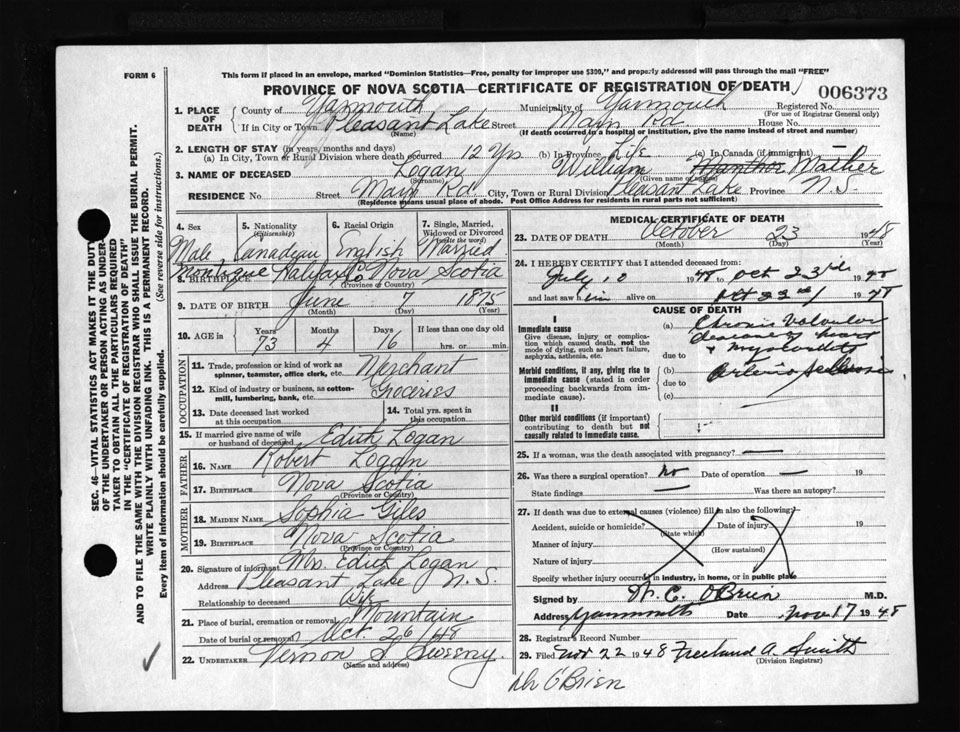 FORM 6
This form if placed in an envelope, marked "Dominion Statistics—Free, penalty for improper use $300," and properly addressed will pass through the mail "FREE"
PROVINCE OF NOVA SCOTIA—CERTIFICATE OF REGISTRATION OF DEATH
006373
1. PLACE OF DEATH
County of Yarmouth Municipality of Yarmouth Registered No.
(For use of Registrar General only)
If in City or Town Pleasant Lake Street Main Rd. House No.
(Name) (If death occurred in a hospital or institution, give the name instead of street and number)
2. LENGTH OF STAY (in years, months and days)
(a) In City, Town or Rural Division where death occurred 12 Yrs (b) In Province Life (c) In Canada (if immigrant) —
3. NAME OF DECEASED Logan William Manthor Mather
(Surname) (Given name or names)
RESIDENCE No. Street Main Rd City, Town or Rural Division Pleasant Lake Province N.S.
(Residence means usual place of abode. Post Office Address for residents in rural parts not sufficient)
4. Sex 5. Nationality (Citizenship) 6. Racial Origin 7. Single, Married, Widowed or Divorced (write the word)
Male Canadian English Married
8. BIRTHPLACE Montague Halifax Co Nova Scotia
(Province or Country)
9. DATE OF BIRTH June 7 1875
(Month) (Day) (Year)
10. AGE in 73 4 16
Years Months Days If less than one day old
hrs. or min.
OCCUPATION
11. Trade, profession or kind of work as spinner, teamster, office clerk, etc. Merchant
12. Kind of industry or business, as cotton-mill, lumbering, bank, etc. Groceries
13. Date deceased last worked at this occupation
14. Total yrs. spent in this occupation
15. If married give name of wife or husband of deceased Edith Logan
FATHER
16. NAME Robert Logan
17. BIRTHPLACE Nova Scotia
(Province or Country)
MOTHER
18. MAIDEN NAME Sophia Giles
19. BIRTHPLACE Nova Scotia
(Province or Country)
20. Signature of informant Mrs. Edith Logan
Address Pleasant Lake N.S.
Relationship to deceased Wife
21. Place of burial, cremation or removal Mountain
Date of burial or removal Oct. 26/48
22. UNDERTAKER Vernon S. Sweeny
(Name and address)
MEDICAL CERTIFICATE OF DEATH
23. DATE OF DEATH October 23 1948
(Month) (Day) (Year)
24. I HEREBY CERTIFY that I attended deceased from:
July 10 1948 to Oct 23rd 1948
and last saw him alive on Oct 22nd 1948
CAUSE OF DEATH
I
Immediate cause
Give disease, injury or complication which caused death, not the mode of dying, such as heart failure, asphyxia, asthenia, etc.
(a) Chronic Valvular disease of heart + myocarditis
due to
Morbid conditions, if any, giving rise to immediate cause (stated in order proceeding backwards from immediate cause).
(b) Arterio sclerosis
due to
(c)
II
Other morbid conditions (if important) contributing to death but not causally related to immediate cause.
25. If a woman, was the death associated with pregnancy? —
26. Was there a surgical operation? No Date of operation — 19
State findings — Was there an autopsy?
27. If death was due to external causes (violence) fill in also the following:
Accident, suicide or homicide? Date of injury 19
(State which)
Manner of injury
(How sustained)
Nature of injury
Specify whether injury occurred in industry, in home, or in public place
Signed by W. C. O'Brien M.D.
Address Yarmouth Date Nov 17 1948
28. Registrar's Record Number
29. Filed Nov 22 1948 Freeland A. Smith
(Division Registrar)
Dr O'Brien
SEC. 46—VITAL STATISTICS ACT MAKES IT THE DUTY
OF THE UNDERTAKER OR PERSON ACTING AS UNDER-
TAKER TO OBTAIN ALL THE PARTICULARS REQUIRED
IN THE "CERTIFICATE OF REGISTRATION OF DEATH"
AND TO FILE THE SAME WITH THE DIVISION REGISTRAR WHO SHALL ISSUE THE BURIAL PERMIT.
WRITE PLAINLY WITH UNFADING INK. THIS IS A PERMANENT RECORD.
Every item of information should be carefully supplied. (See reverse side for instructions.)